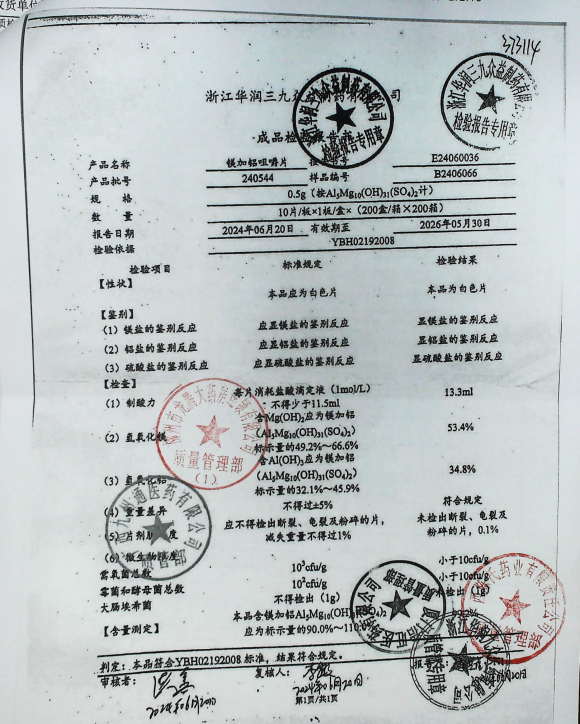 373114
浙江华润三九众益制药有限公司
成品检验报告书
产品名称 镁加铝咀嚼片 E24060036
产品批号 240544 样品编号 B2406066
规 格 0.5g（按Al₅Mg₁₀(OH)₃₁(SO₄)₂计）
数 量 10片/板×1板/盒×（200盒/箱×200箱）
报告日期 2024年06月20日 有效期至 2026年05月30日
检验依据 YBH02192008
检验项目 标准规定 检验结果
【性状】
本品应为白色片 本品为白色片
【鉴别】
（1）镁盐的鉴别反应 应显镁盐的鉴别反应 显镁盐的鉴别反应
（2）铝盐的鉴别反应 应显铝盐的鉴别反应 显铝盐的鉴别反应
（3）硫酸盐的鉴别反应 应显硫酸盐的鉴别反应 显硫酸盐的鉴别反应
【检查】
（1）制酸力 每片消耗盐酸滴定液（1mol/L）
不得少于11.5ml 13.3ml
（2）氢氧化镁 含Mg(OH)₂应为镁加铝
(Al₅Mg₁₀(OH)₃₁(SO₄)₂)
标示量的49.2%～66.6% 53.4%
（3）氢氧化铝 含Al(OH)₃应为镁加铝
(Al₅Mg₁₀(OH)₃₁(SO₄)₂)
标示量的32.1%～45.9% 34.8%
（4）重量差异 不得过±5% 符合规定
（5）片剂脆碎度 应不得检出断裂、龟裂及粉碎的片，
减失重量不得过1% 未检出断裂、龟裂及
粉碎的片，0.1%
（6）微生物限度
需氧菌总数 10³cfu/g 小于10cfu/g
霉菌和酵母菌总数 10²cfu/g 小于10cfu/g
大肠埃希菌 不得检出（1g） 未检出（1g）
【含量测定】 本品含镁加铝Al₅Mg₁₀(OH)₃₁(SO₄)₂
应为标示量的90.0%～110.0%
判定：本品符合YBH02192008 标准，结果符合规定。
审核者： 复核人：
2024年06月20日
第1页/共1页
检验报告专用章
质量管理部
（1）
质管部